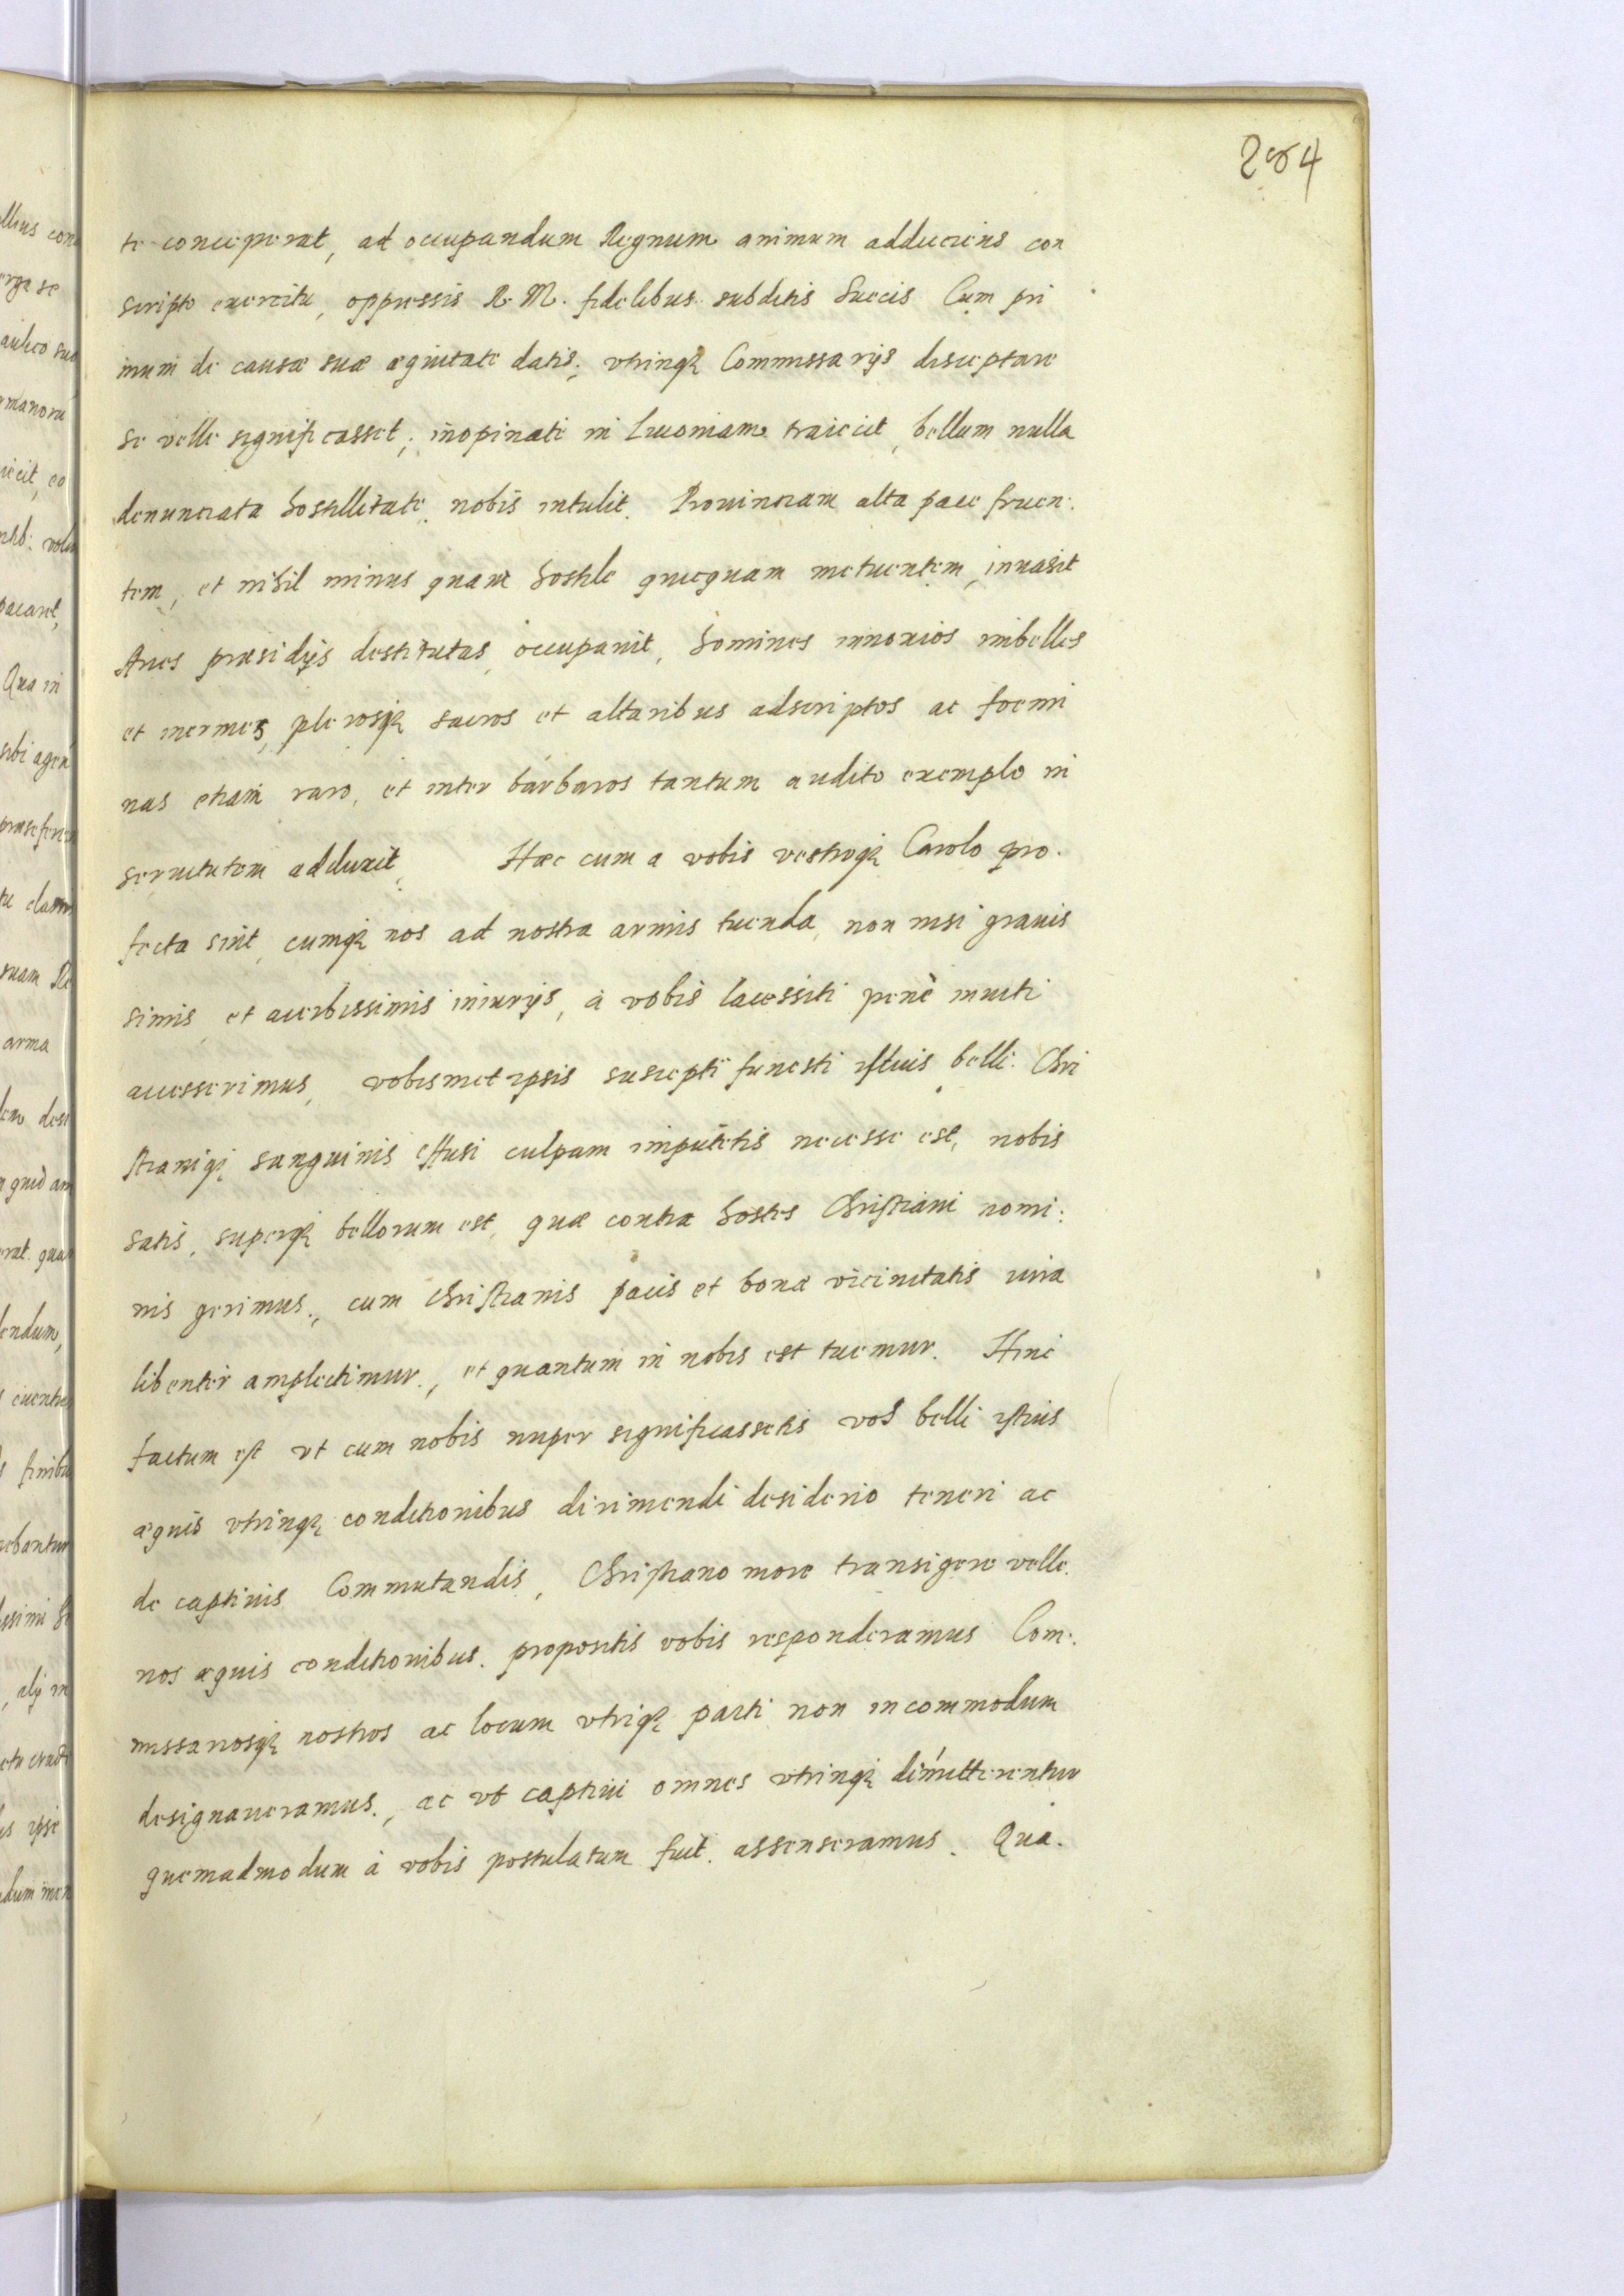 284
te conceperat, ad occupandum Regnum animum adducens con
scripto exercitu, oppressis R. M. fidelibus subditis Suecis Cum pri
mum de causæ suæ æquitate datis, vtrinqȝ Commissarijs disceptare
se velle significasset, inopinate in Liuoniam traiecit, bellum nulla
denunciata hostilitate nobis intulit. Prouinciam alta pace fruen:
tem, et nihil minus quam hostile quicquam metuentem, inuasit
Arces præsidijs destitutas occupauit, homines innoxios imbelles
et inermes, plerosqȝ sacros et altaribus adscriptos ac foemi
nas etiam raro, et inter barbaros tantum audito exemplo in
seruitutem adduxit. Hæc cum a vobis vestroqȝ Carolo pro.
fecta sint, cumqȝ nos ad nostra armis tuenda, non nisi grauis
simis et acerbissimis iniurijs, à vobis lacessiti penè inuiti
accesserimus, vobismet ipsis suscepti funesti istius belli. Chri
stianiqȝ sanguinis effusi culpam imputetis necesse est, nobis
satis, superqȝ bellorum est, quæ contra hostes Christiani nomi:
nis gerimus., cum christianis pacis et bonæ vicinitatis iura
libenter amplectimur., et quantum in nobis est tuemur. Hinc
factum est vt cum nobis nuper significassetis vos belli istius
æquis vtrinqȝ conditionibus dirimendi desiderio teneri ac
de captiuis Commutandis, Christiano more transigere velle.
nos æquis conditionibus. propositis vobis responderamus Com:
missariosqȝ nostros ac locum vtriqȝ parti non incommodum
designaueramus., ac vt captiui omnes vtrinqȝ dimitterentur
quemadmodum à vobis postulatum fuit. assenseramus. Qua.